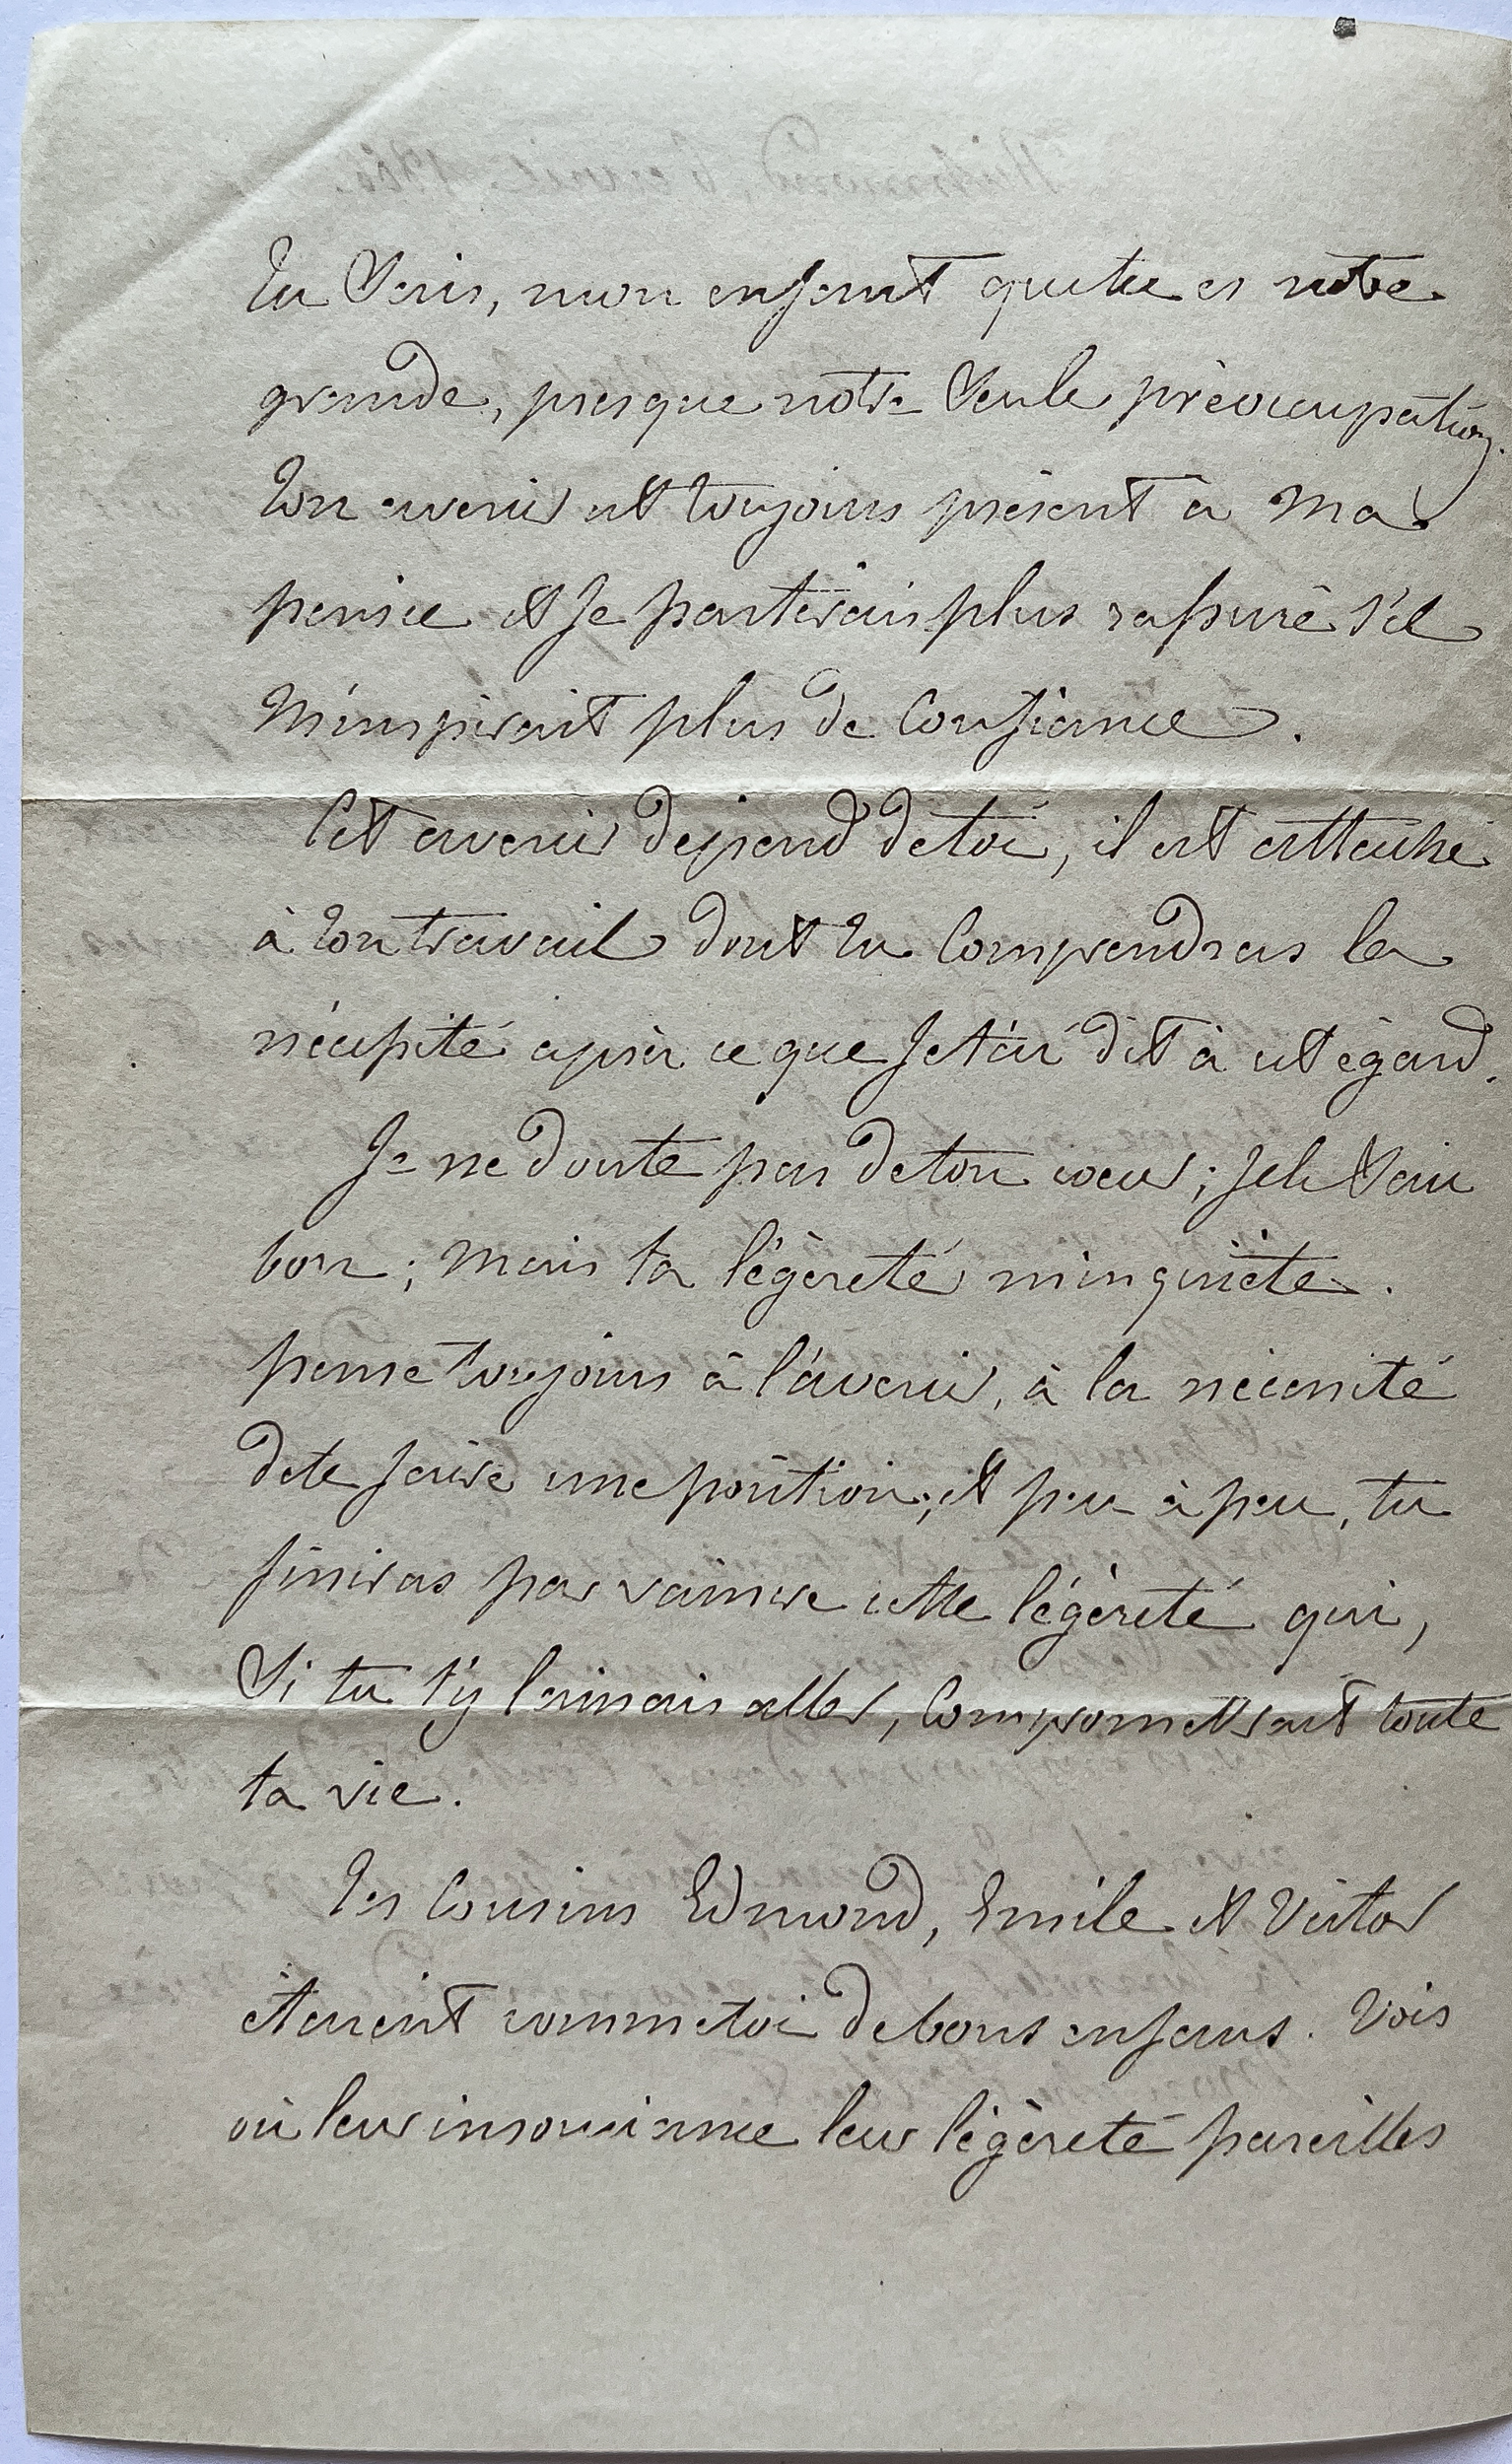 Tu sais, mon enfant que tu es notre
grande, presque notre seule préoccupation.
Ton avenir est toujours présent à ma
pensée et je partirais plus rassuré s'il
m'inspirait plus de confiance.
Cet avenir dépend de toi, il est attaché
à ton travail dont tu comprendras la
nécessité après ce que je t'ai dit à cet égard.
Je ne doute pas de ton cœur; je le sais
bon; mais ta légèreté m'inquiète.
pense toujours à l'avenir, à la nécessité
de te faire une position; et peu à peu, tu
finiras par vaincre cette légèreté qui,
si tu t'y laissais aller, compromettrait toute
ta vie.
Tes cousins Edmond, Emile et Victor
étaient comme toi de bons enfans. Vois
où leur insouciance leur légèreté pareilles